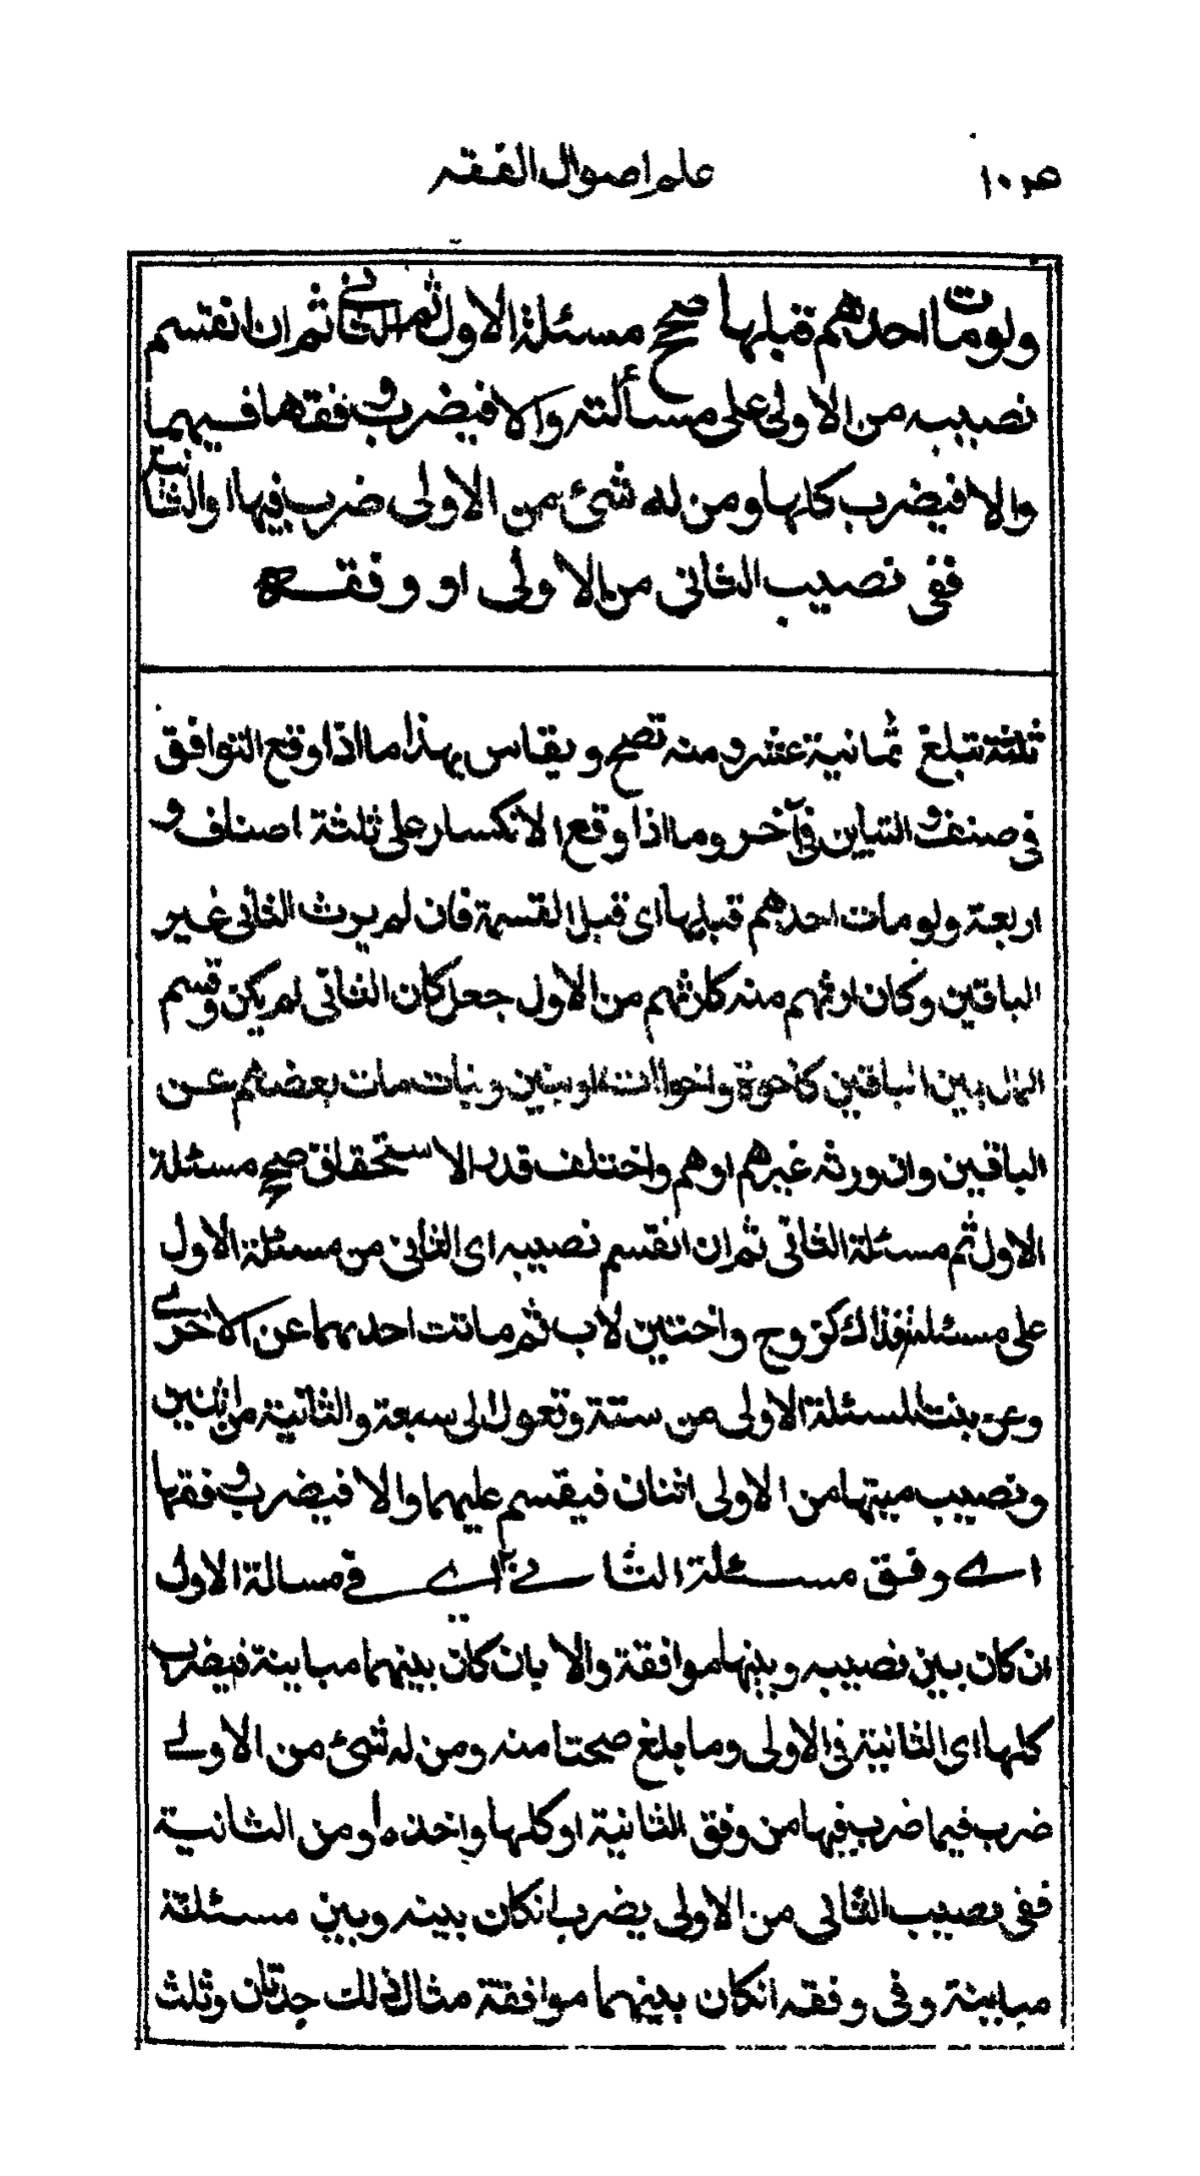 ص١٠ علم اصوال الفقه
ولومات احدهم قبلها صحح مسئلة الاول ثم الثاني ثم ان انقسم
نصيبه من الاولى على مسألته والا فيضرب وفقها فيهما
والا فيضرب كلها ومن له شئ من الاولى ضرب فيها او الثانية
ففي نصيب الثاني من الاولى او وفقه
ثلثة تبلغ ثمانية عشر ومنه تصح ويقاس بهذا ما اذا وقع التوافق
في صنف والتباين في آخر وما اذا وقع الانكسار على ثلثة اصناف و
اربعة ولو مات احدهم قبلها اى قبل القسمة فان لم يرث الثانى غير
الباقين وكان ارثهم منه كارثهم من الاول جعل كان الثانى لم يكن وقسم
المال بين الباقين كاخوة واخوات او بنين وبنات مات بعضهم عن
الباقين وان ورثه غيرهم اوهم واختلف قدر الاستحقاق صحح مسئلة
الاول ثم مسئلة الثانى ثم ان انقسم نصيبه اى الثانى من مسئلة الاول
على مسئلته فذاك كزوج واختين لاب ثم ماتت احدهما عن الاخرى
وعن بنت المسئلة الاولى من ستة وتعول الى سبعة والثانية من اثنين
ونصيب ميتها من الاولى اثنان فيقسم عليهما والا فيضرب وفقها
اے وفق مسئلة الثانے اے في مسالة الاول
ان كان بين نصيبه وبينها موافقة والا بان كان بينهما مباينة فيضرب
كلها اى الثانية في الاولى وما بلغ صحتا منه ومن له شئ من الاولے
ضرب فيما ضرب فيها من وفق الثانية او كلها واخذه او من الثانية
ففى نصيب الثانى من الاولى يضرب انكان بينه وبين مسئلته
مباينة وفى وفقه انكان بينهما موافقة مثال ذلك جدتان وثلث